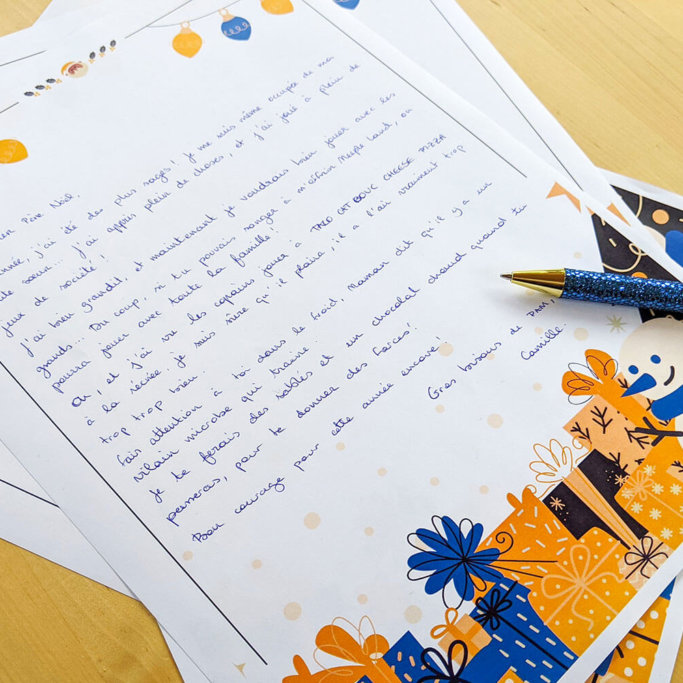 Père Noël,
j'ai été des plus sages! je me suis même occupée de ma
soeur... j'ai appris plein de choses, et j'ai joué à plein de
jeux de société!
J'ai bien grandit, et maintenant je voudrais bien jouer avec les
grands... Du coup, si tu pouvais songer à m'offrir Meeple Land, on
pourra jouer avec toute la famille!
Oh, et j'ai vu les copains jouer à TACO CAT BOUC CHEESE PIZZA
à la récrée je suis sûre qu'il plaira, il a l'air vraiment trop
trop trop bien.
Fais attention à toi dans le froid, Maman dit qu'il y a un
vilain microbe qui traine.
Je te ferais des sablés et un chocolat chaud quand tu
passeras, pour te donner des forces!
Bon courage pour cette année encore!
Gros bisous de PAM,
Camille.